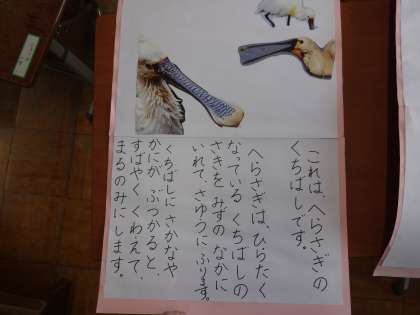 これは、へらさぎの
くちばしです。
へらさぎは、ひらたく
なっている くちばしの
さきを みずの なかに
いれて、さゆうに ふります。
くちばしに さかなや
かにが ぶつかると、
すばやく くわえて、
まるのみにします。